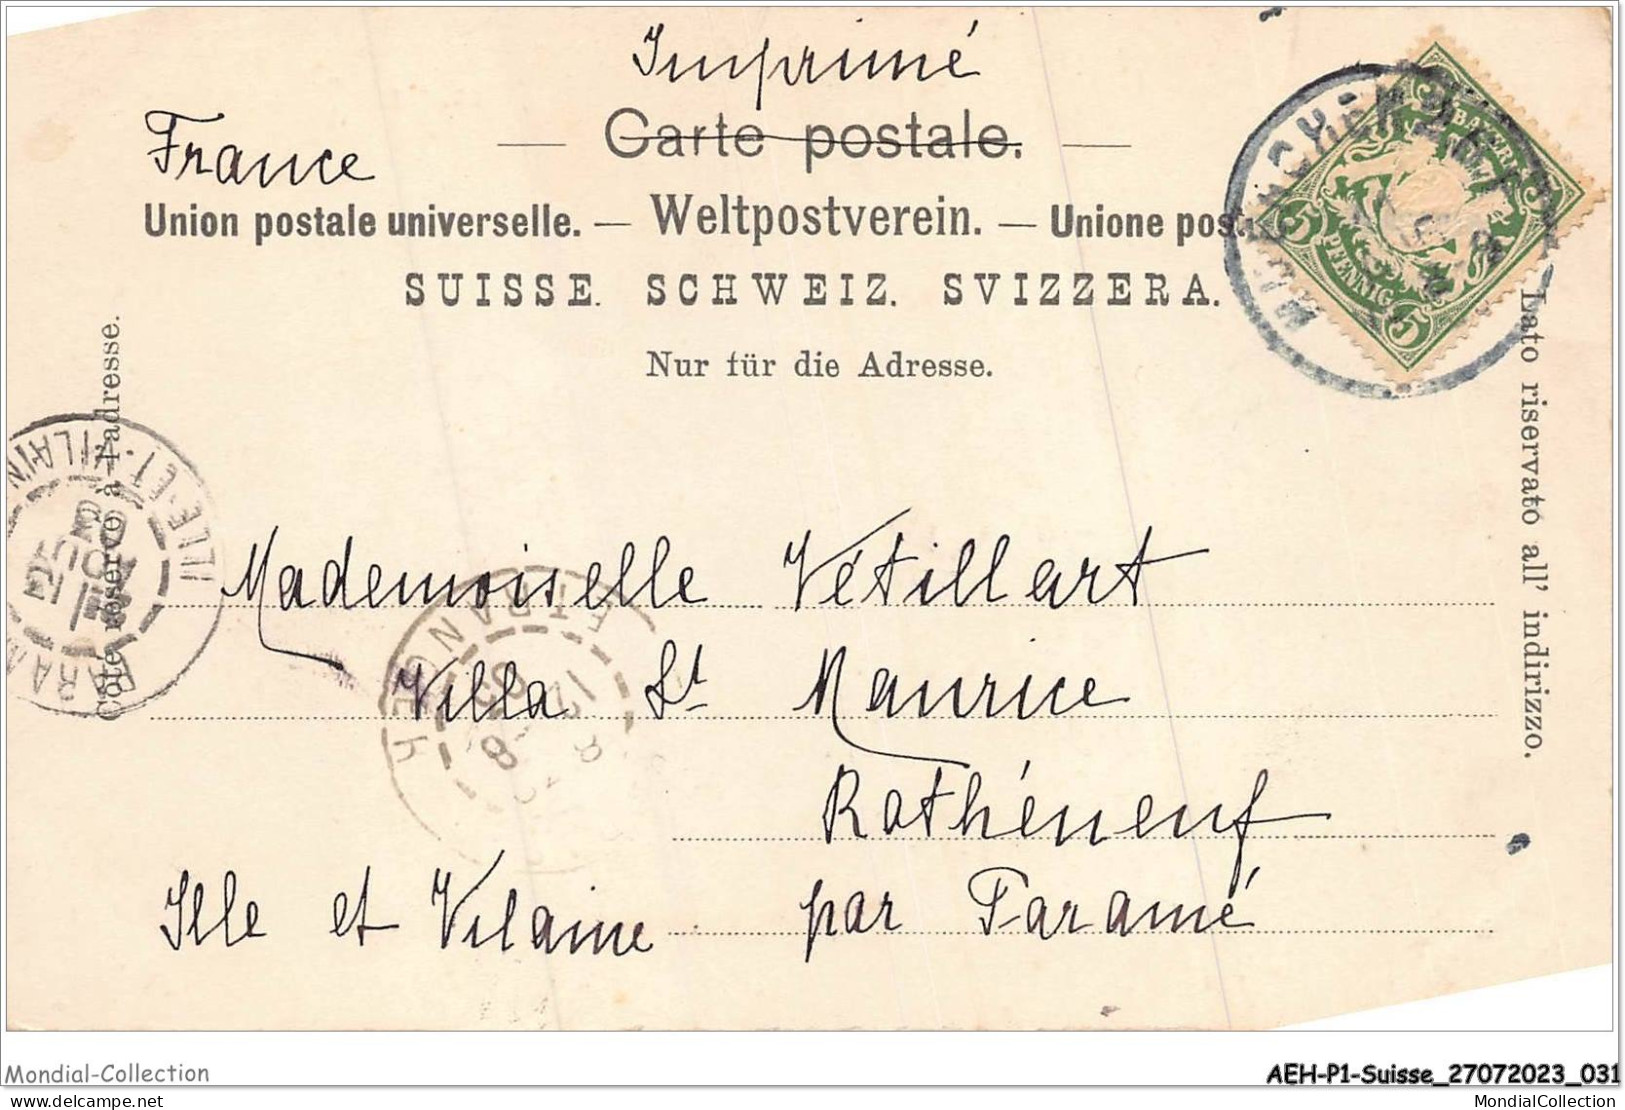 Imprimé
France
Carte postale.
Union postale universelle. — Weltpostverein. — Unione post
SUISSE. SCHWEIZ. SVIZZERA.
Nur für die Adresse.
Côté réservé à l'adresse.
Lato riservato all' indirizzo.
BAYERN
5 PFENNIG 5
ILLE-ET-VILAIN
ETRANGER
Mademoiselle Vétillart
Villa St Maurice
Rothéneuf
Ille et Vilaine par Paramé
Mondial-Collection
AEH-P1-Suisse_27072023_031
delcampe.net
MondialCollection